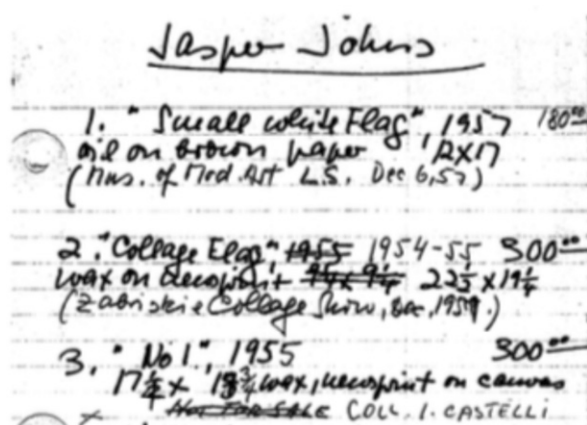 Jasper Johns
1. "Small white Flag", 1957 180⁰⁰
oil on brown paper 12x17
(Mus. of Mod. Art L.S. Dec 6, 57)
2. "Collage Flag", 1955 1954-55 300⁰⁰
wax on newsprint
(Zabriskie Collage Show, Dec, 1957.)
3. "No 1", 1955 300⁰⁰
wax, newsprint on canvas
NOT FOR SALE COLL. I. CASTELLI